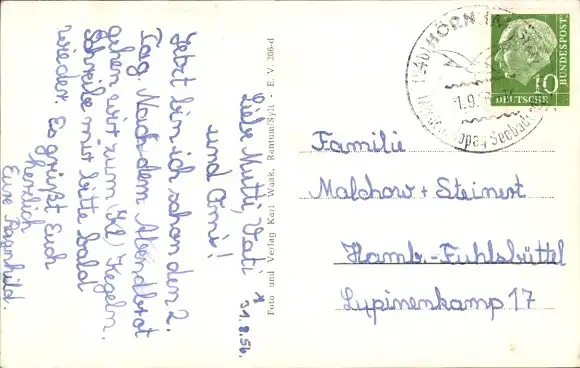 Liebe Mutti, Vati
31.8.56.
und Omi!
Jetzt bin ich schon den 2.
Tag Nach dem Abendbrot
gehen wir zum (Kl) Kegeln.
Schreibe mir bitte bald
wieder. Es grüßt Euch
herzlich
Eure Ragnhild.
Foto und Verlag Karl Waak, Rantum/Sylt - E. V. 208-d
HÖRNUM (SYLT)
1.9.56
10
DEUTSCHE BUNDESPOST
Familie
Malchow + Steinert
Hamb.-Fuhlsbüttel
Lupinenkamp 17